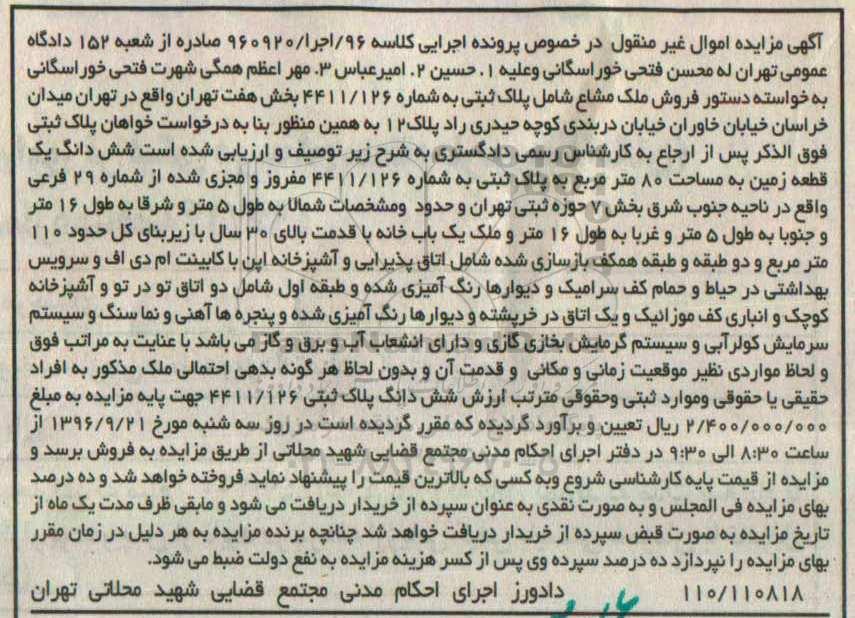 آگهی مزایده اموال غیر منقول در خصوص پرونده اجرایی کلاسه ۹۶/اجرا/۹۶۰۹۲۰ صادره از شعبه ۱۵۲ دادگاه
عمومی تهران له محسن فتحی خوراسگانی وعلیه ۱. حسین ۲. امیرعباس ۳. مهر اعظم همگی شهرت فتحی خوراسگانی
به خواسته دستور فروش ملک مشاع شامل پلاک ثبتی به شماره ۴۴۱۱/۱۲۶ بخش هفت تهران واقع در تهران میدان
خراسان خیابان خاوران خیابان دربندی کوچه حیدری راد پلاک۱۲ به همین منظور بنا به درخواست خواهان پلاک ثبتی
فوق الذکر پس از ارجاع به کارشناس رسمی دادگستری به شرح زیر توصیف و ارزیابی شده است شش دانگ یک
قطعه زمین به مساحت ۸۰ متر مربع به پلاک ثبتی به شماره ۴۴۱۱/۱۲۶ مفروز و مجزی شده از شماره ۲۹ فرعی
واقع در ناحیه جنوب شرق بخش ۷ حوزه ثبتی تهران و حدود ومشخصات شمالا به طول ۵ متر و شرقا به طول ۱۶ متر
و جنوبا به طول ۵ متر و غربا به طول ۱۶ متر و ملک یک باب خانه با قدمت بالای ۳۰ سال با زیربنای کل حدود ۱۱۰
متر مربع و دو طبقه و طبقه همکف بازسازی شده شامل اتاق پذیرایی و آشپزخانه اپن با کابینت ام دی اف و سرویس
بهداشتی در حیاط و حمام کف سرامیک و دیوارها رنگ آمیزی شده و طبقه اول شامل دو اتاق تو در تو و آشپزخانه
کوچک و انباری کف موزائیک و یک اتاق در خرپشته و دیوارها رنگ آمیزی شده و پنجره ها آهنی و نما سنگ و سیستم
سرمایش کولرآبی و سیستم گرمایش بخاری گازی و دارای انشعاب آب و برق و گاز می باشد با عنایت به مراتب فوق
و لحاظ مواردی نظیر موقعیت زمانی و مکانی و قدمت آن و بدون لحاظ هر گونه بدهی احتمالی ملک مذکور به افراد
حقیقی یا حقوقی وموارد ثبتی وحقوقی مترتب ارزش شش دانگ پلاک ثبتی ۴۴۱۱/۱۲۶ جهت پایه مزایده به مبلغ
۲/۴۰۰/۰۰۰/۰۰۰ ریال تعیین و برآورد گردیده که مقرر گردیده است در روز سه شنبه مورخ ۱۳۹۶/۹/۲۱ از
ساعت ۸:۳۰ الی ۹:۳۰ در دفتر اجرای احکام مدنی مجتمع قضایی شهید محلاتی از طریق مزایده به فروش برسد و
مزایده از قیمت پایه کارشناسی شروع وبه کسی که بالاترین قیمت را پیشنهاد نماید فروخته خواهد شد و ده درصد
بهای مزایده فی المجلس و به صورت نقدی به عنوان سپرده از خریدار دریافت می شود و مابقی ظرف مدت یک ماه از
تاریخ مزایده به صورت قبض سپرده از خریدار دریافت خواهد شد چنانچه برنده مزایده به هر دلیل در زمان مقرر
بهای مزایده را نپردازد ده درصد سپرده وی پس از کسر هزینه مزایده به نفع دولت ضبط می شود.
۱۱۰/۱۱۰۸۱۸ دادورز اجرای احکام مدنی مجتمع قضایی شهید محلاتی تهران